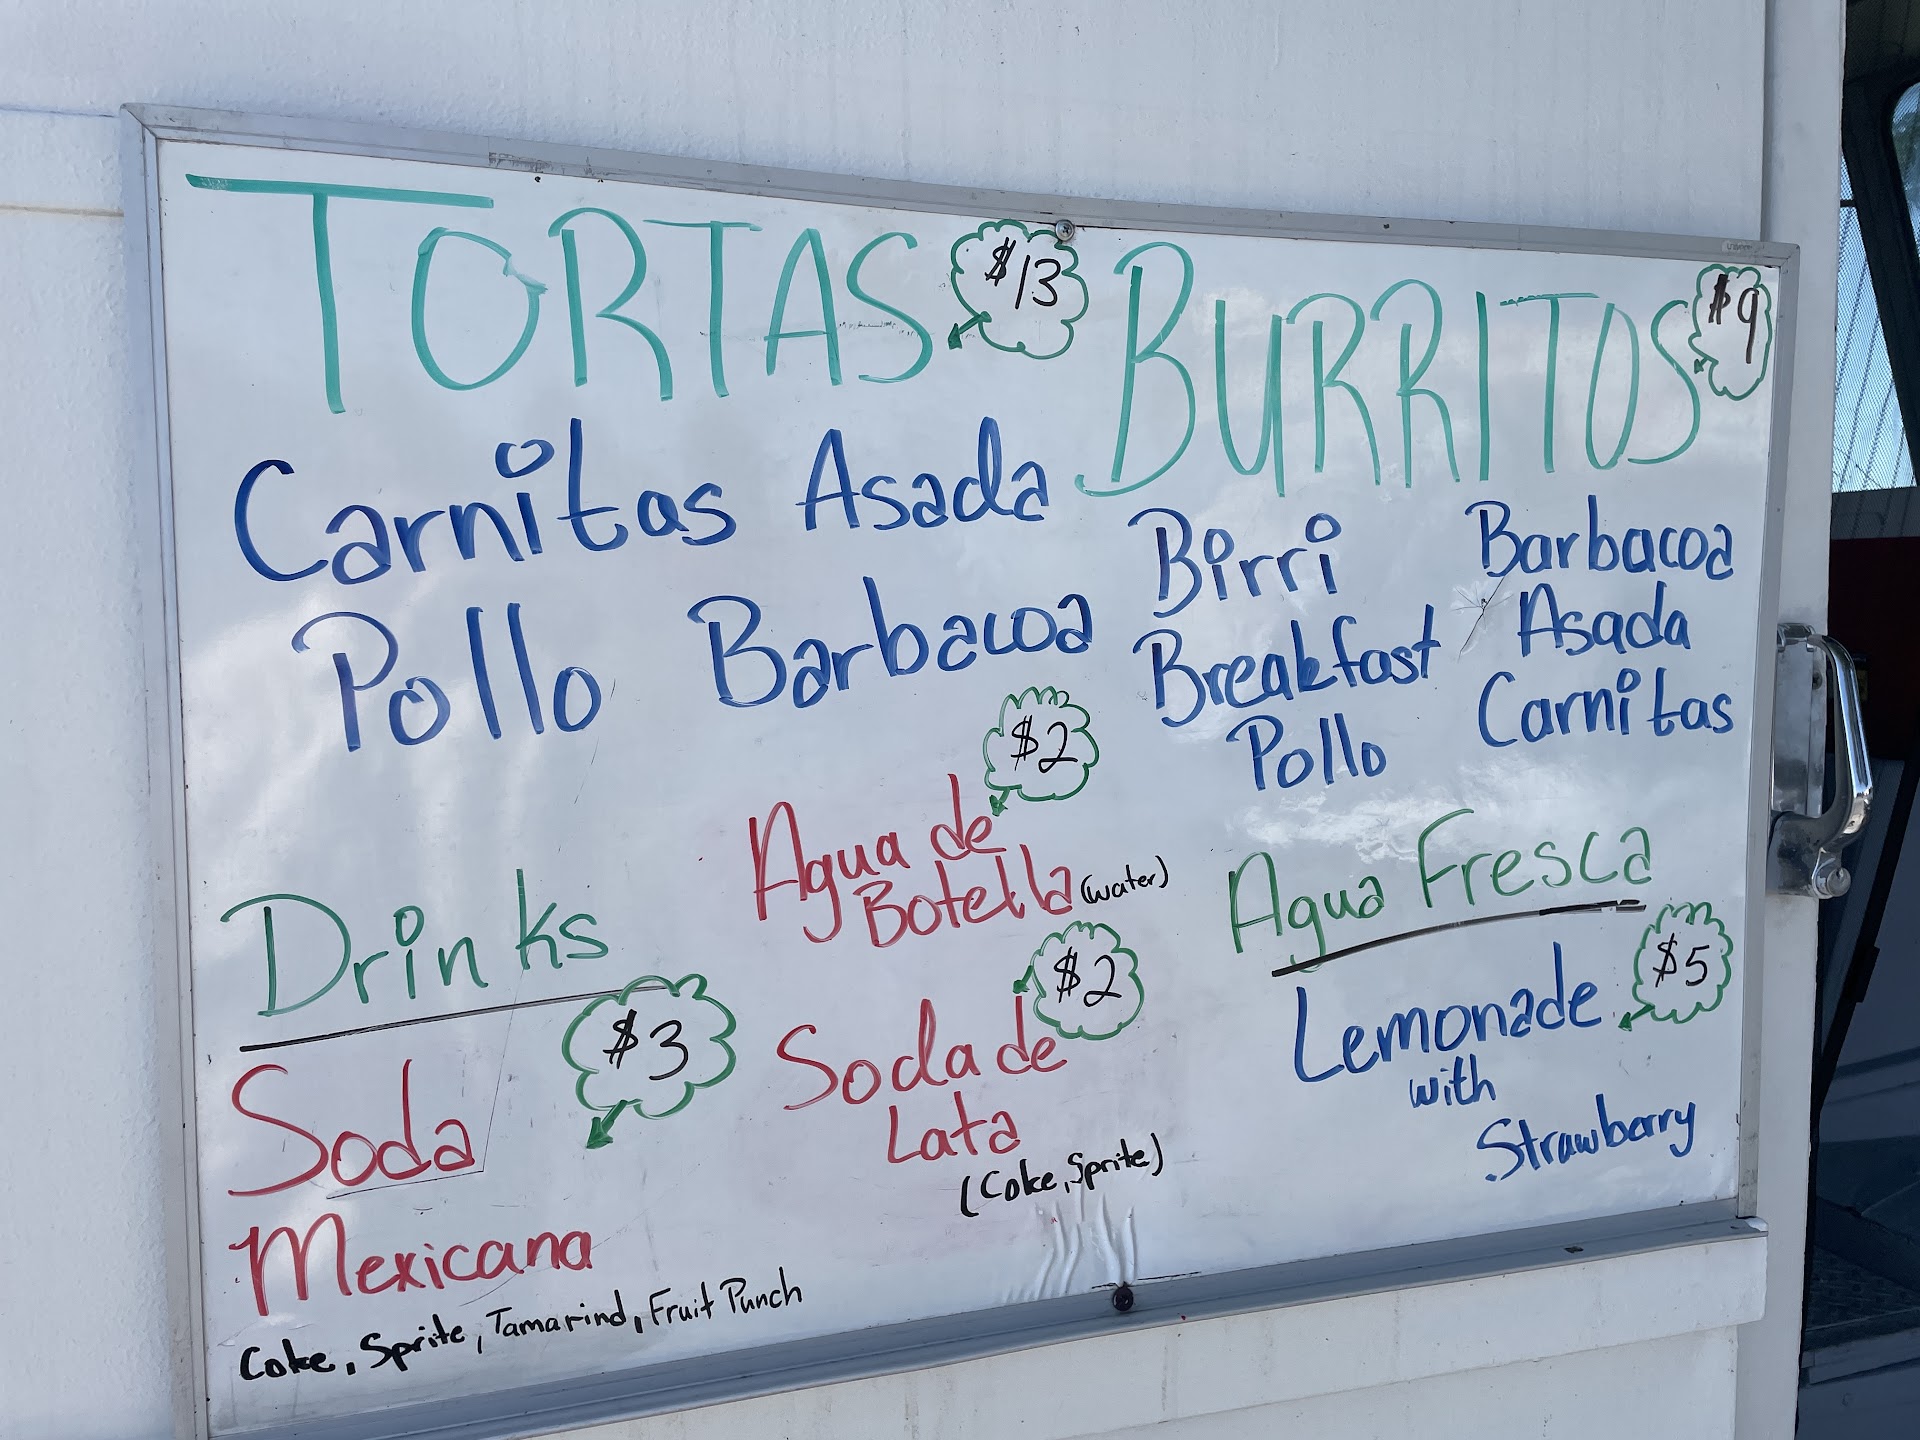 TORTAS $13
Carnitas Asada
Pollo Barbacoa
BURRITOS $9
Birri Barbacoa
Breakfast Asada
Pollo Carnitas
Drinks
Soda $3
Mexicana
Coke, Sprite, Tamarind, Fruit Punch
$2
Agua de
Botella (water)
$2
Soda de
Lata
(Coke, Sprite)
Agua Fresca
Lemonade $5
with
Strawberry